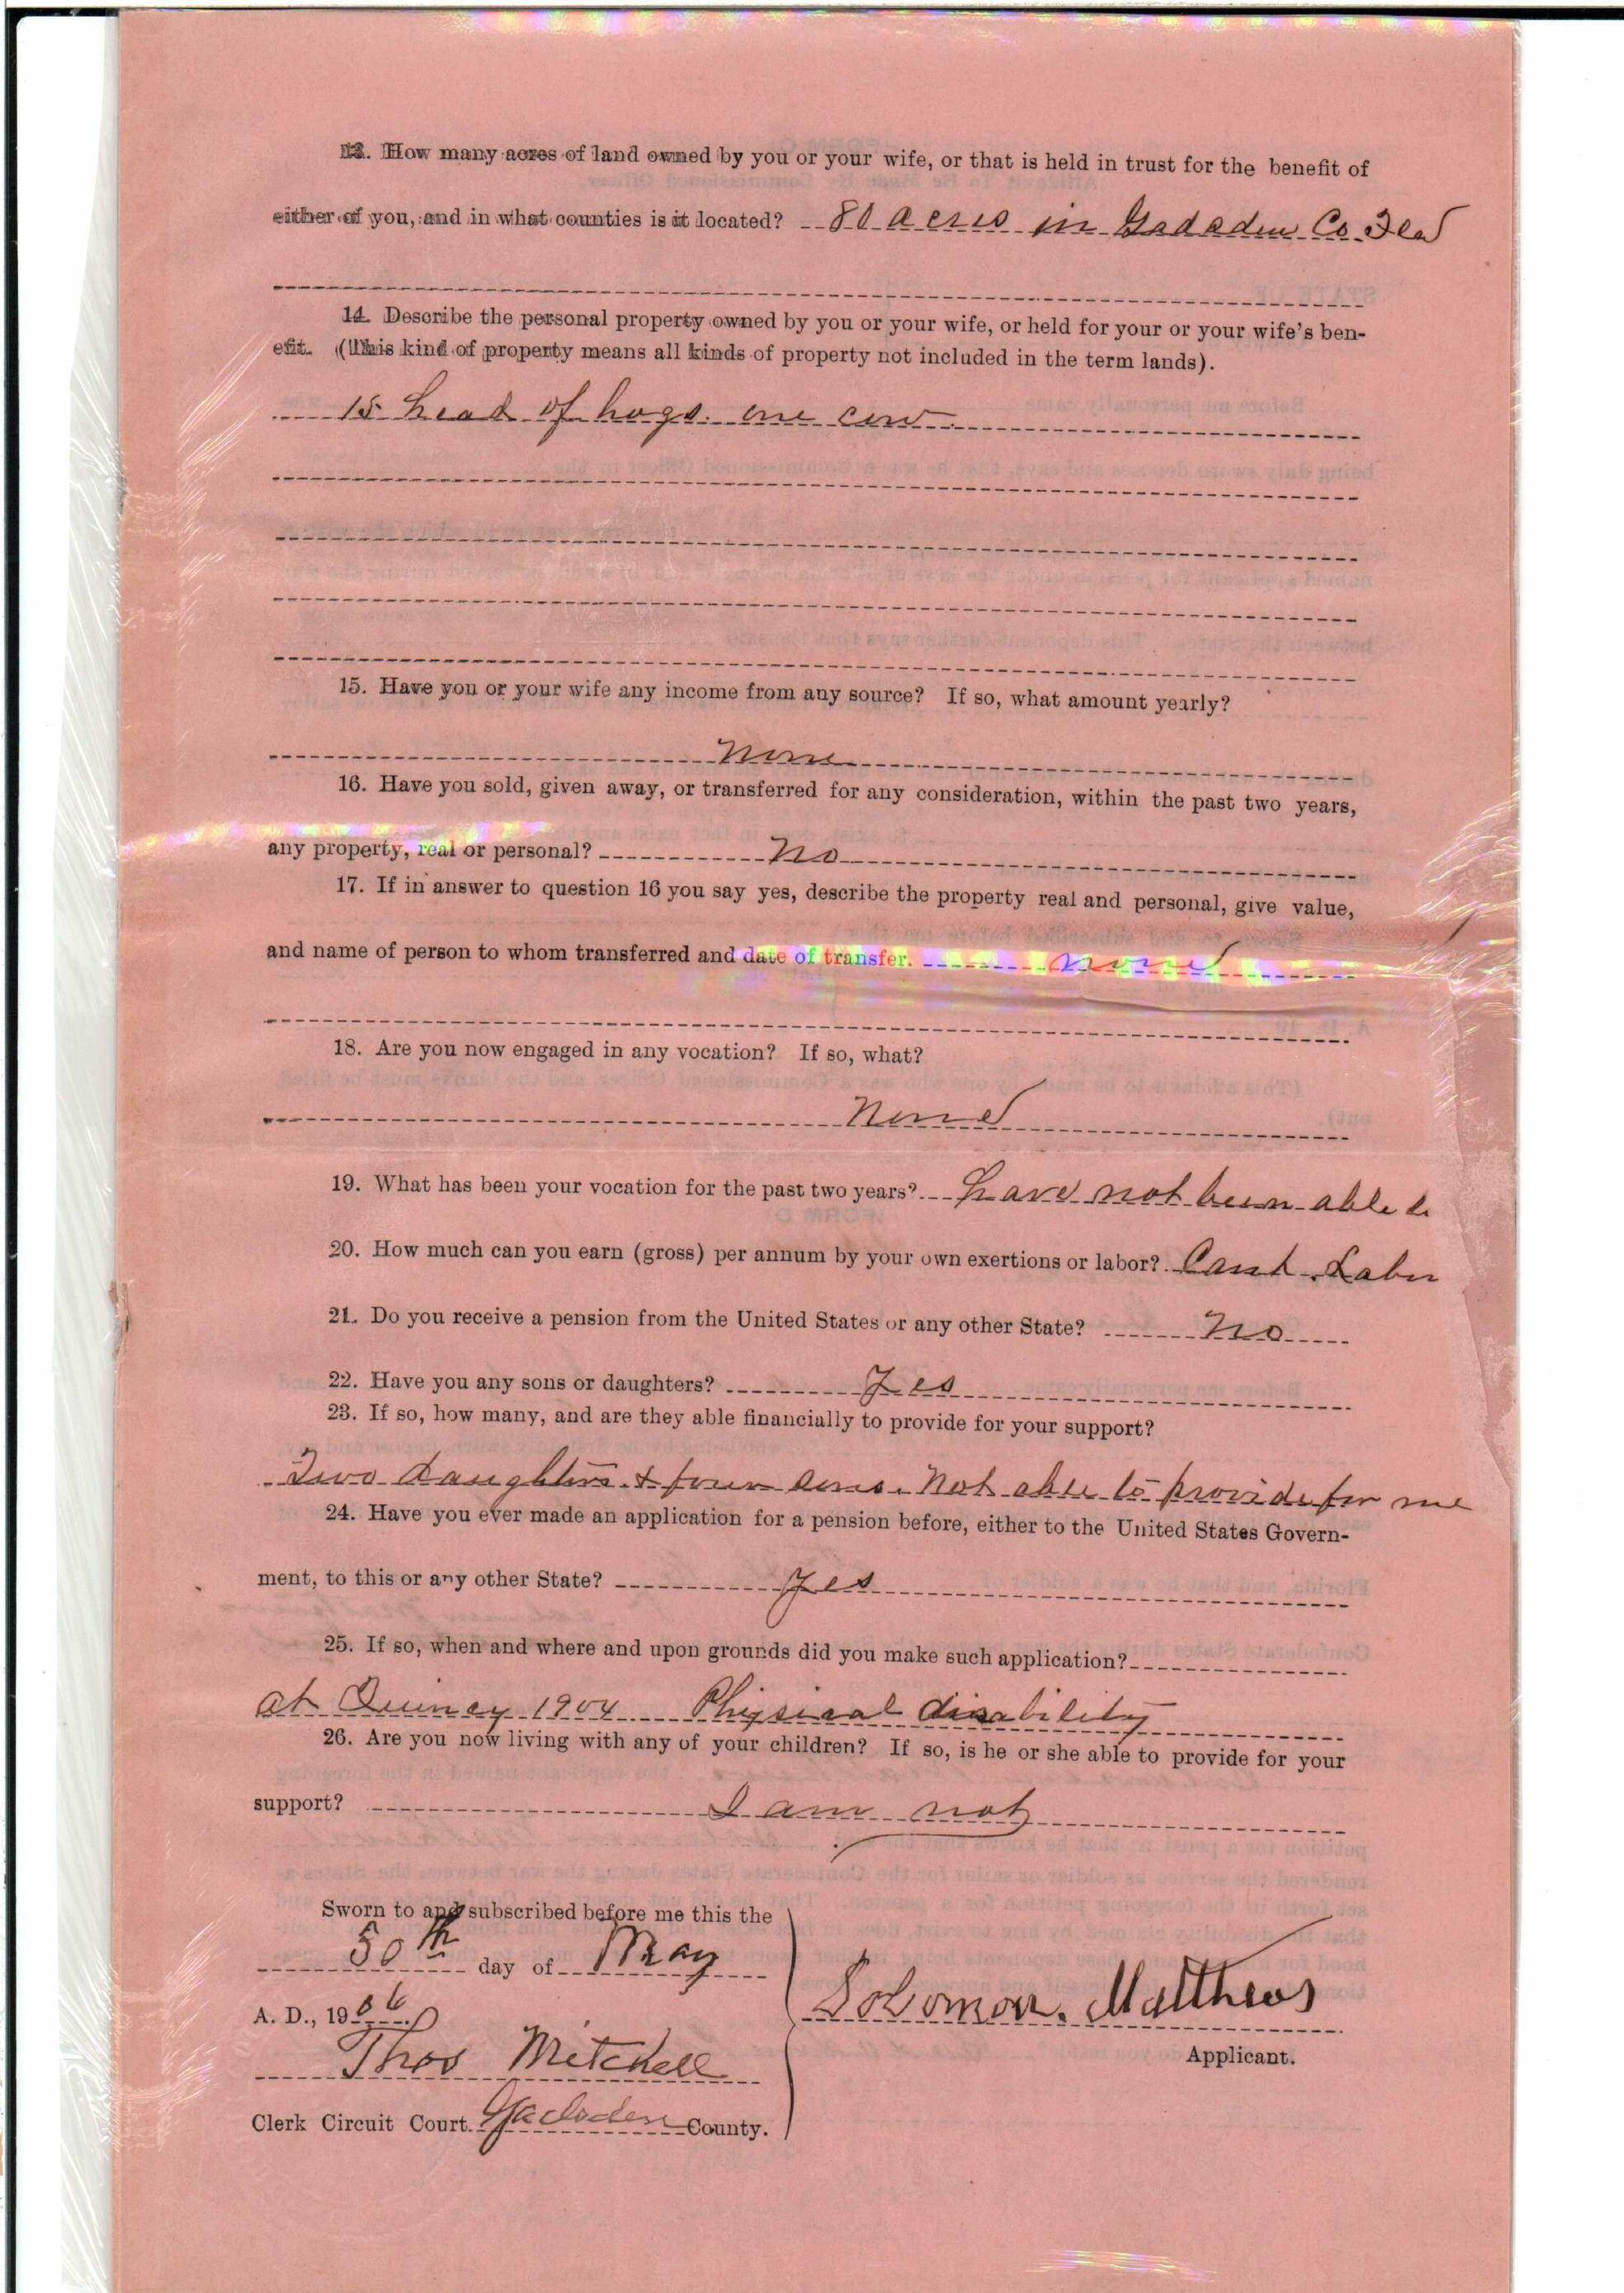 13. How many acres of land owned by you or your wife, or that is held in trust for the benefit of
either of you, and in what counties is it located? 80 acres in Gadsden Co. Fla
14. Describe the personal property owned by you or your wife, or held for your or your wife's ben-
efit. (This kind of property means all kinds of property not included in the term lands).
15 head of hogs. one cow
15. Have you or your wife any income from any source? If so, what amount yearly?
None
16. Have you sold, given away, or transferred for any consideration, within the past two years,
any property, real or personal? No
17. If in answer to question 16 you say yes, describe the property real and personal, give value,
and name of person to whom transferred and date of transfer. none
18. Are you now engaged in any vocation? If so, what?
None
19. What has been your vocation for the past two years? have not been able
20. How much can you earn (gross) per annum by your own exertions or labor? Cant Labor
21. Do you receive a pension from the United States or any other State? No
22. Have you any sons or daughters? Yes
23. If so, how many, and are they able financially to provide for your support?
Two daughters & four sons. Not able to provide for me
24. Have you ever made an application for a pension before, either to the United States Govern-
ment, to this or any other State? Yes
25. If so, when and where and upon grounds did you make such application?
at Quincy 1904 Physical disability
26. Are you now living with any of your children? If so, is he or she able to provide for your
support? I am not
Sworn to and subscribed before me this the
30th day of May
A. D., 1906
Solomon Matthews
Applicant.
Thos Mitchell
Clerk Circuit Court Gadsden County.